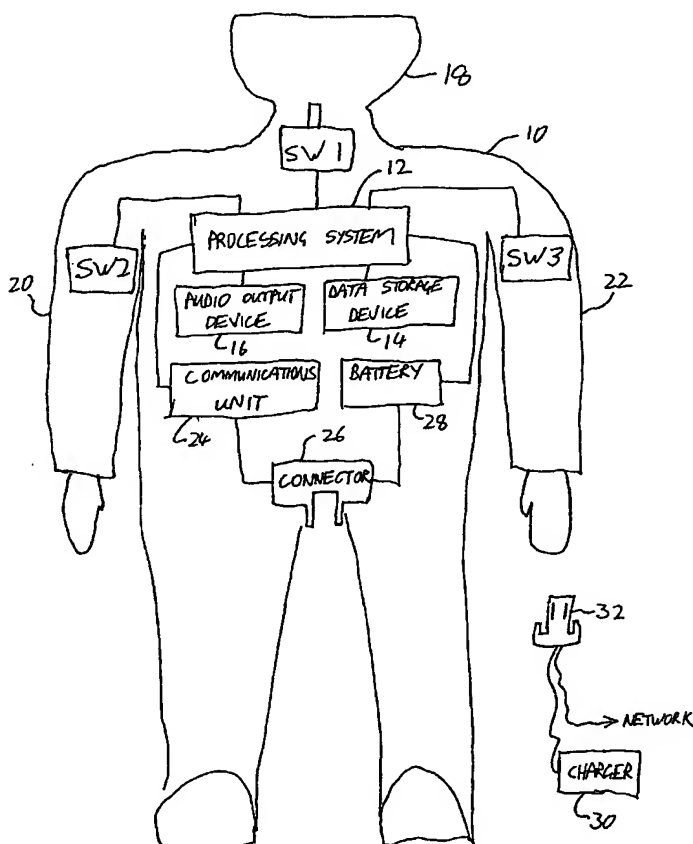 18
10
SW1
12
PROCESSING SYSTEM
SW2
SW3
20
22
AUDIO OUTPUT
DEVICE
16
DATA STORAGE
DEVICE
14
COMMUNICATIONS
UNIT
24
BATTERY
28
26
CONNECTOR
32
NETWORK
CHARGER
30